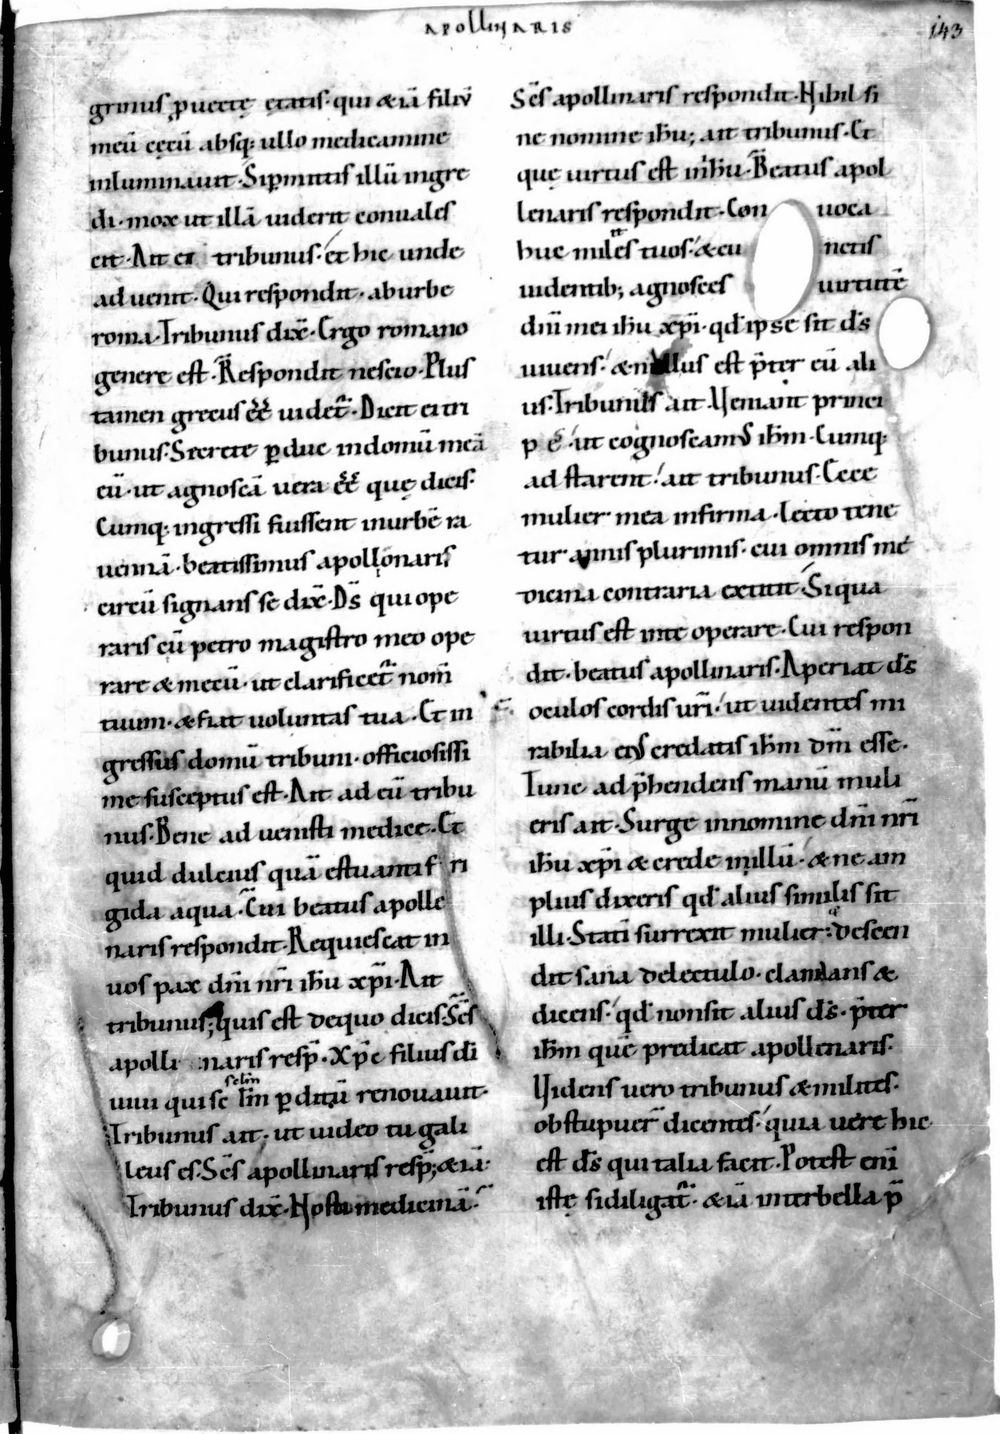 apollinaris
143
grinus, puerṭe ętatis· qui & iā filiū
meū cęcū absq; ullo medicamine
inluminauit· Si pmittis illū ingre
di· mox ut illā uiderit conuales
cet· Ait ei tribunus· et hic unde
aduenit· Qui respondit· ab urbe
roma· Tribunus dix̄· Ergo romano
genere est· R̄espondit nescio· Plus
tamen grecus ēē uidet̄· Dicit ei tri
bunus· Secrete pduc in domū meā
eū· ut agnoscā uera ēē quę dicis·
Cumq; ingressi fuissent in urbē ra
uennā· beatissimus apollonaris
circū signans se dix̄· D̄s qui ope
raris cū petro magistro meo ope
rare & mecū· ut clarificet̄ nom̄
tuum· & fiat uoluntas tua· Et in
gressus domū tribuni· officiosissi
me susceptus est· Ait ad eū tribu
nus· Bene ad uenisti medice· Et
quid dulcius quā estuanti f ri
gida aqua· Cui beatus apolle
naris respondit· Requiescat in
uos pax dn̄i nr̄i ih̄u xp̄i· Ait
tribunus; quis est de quo dicis· Sc̄s
apolli naris resp̄· Xp̄c filius dī
uiui qui se l̄m pditū renouauit·
Tribunus ait· ut uideo tu gali
leus es· Sc̄s apollinaris resp̄; & iā·
Tribunus dix̄· Nosti medicinā·
Sc̄s apollinaris respondit· Nihil si
ne nomine ih̄u; ait tribunus· Et
quę uirtus est in ih̄u· Beatus apol
lenaris respondit· Con uoca
huc milites tuos· & cu netis
uidentib; agnosces uirtutē
dn̄i mei ih̄u xp̄i· qd̄ ipse sit d̄s
uiuens· & nullus est p̄ter eū ali
us· Tribunus ait· Veniant princi
p e· ut cognoscamus ih̄m· Cumq;
ad starent· ait tribunus· Ecce
mulier mea infirma· lecto tene
tur annis plurimis· cui omnis me
dicina contraria extitit· Si qua
uirtus est in te operare· Cui respon
dit· beatus apollinaris· Aperiat d̄s
oculos cordis ur̄i· ut uidentes mi
rabilia eius credatis ih̄m dn̄m esse·
Tunc ad p̄hendens manū muli
eris ait· Surge in nomine dn̄i nr̄i
ih̄u xp̄i & crede in illū· & ne am
plius dixeris qd̄ alius similis sit
illi· Stati surrexit mulier· & descen
dit sana de lectulo· clamans &
dicens· qd̄ non sit alius d̄s· p̄ter
ih̄m quē predicat apollenaris·
Videns uero tribunus & milites·
obstupuer̄ dicentes· quia uere hic
est d̄s qui talia facit· Potest eni
iste si diligat̄· & iā inter bella p̄